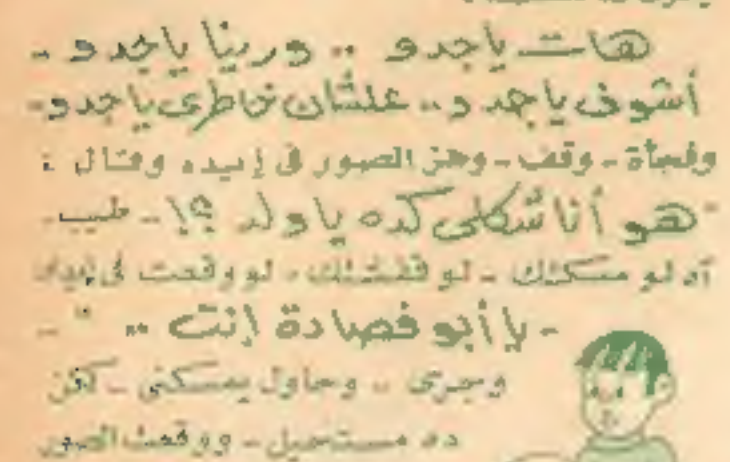 هات ياجدو .. ورينا ياجدو ..
أشوف ياجدو .. علشان خاطري ياجدو ..
وفجأة - وقف - وهز الصور في إيده وقال :
"هو أنا شكلي كده يا ولد ؟! - طيب -
آه لو مسكتك - لو قفشتك - لو وقعت في إيدي
- يا أبو فصادة إنت .. " -
وجرى .. وحاول يمسكني - لكن
ده مستحيل - ووقعت الصور